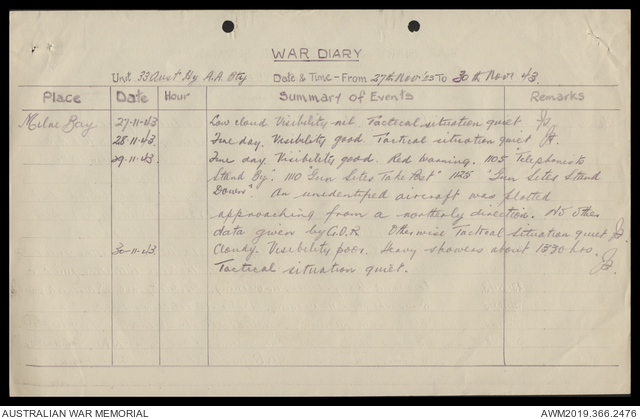 WAR DIARY
Unit 33 Aust Hy A.A. Bty Date & Time - From 27th Nov '43 To 30th Nov 43.
Place Date Hour Summary of Events Remarks
Milne Bay 27-11-43 Low cloud Visibility nil. Tactical situation quiet.
28-11-43 Fine day. Visibility good. Tactical situation quiet
29-11-43. Fine day. Visibility good. Red Warning. 1105 "Telephonists
Stand By". 1110 "Gun Sites Take Post" 1125 "Gun Sites Stand
Down". An unidentified aircraft was plotted
approaching from a northerly direction. No other
data given by G.O.R Otherwise Tactical situation quiet
30-11-43 Cloudy. Visibility poor. Heavy showers about 1330 hrs.
Tactical situation quiet.
AUSTRALIAN WAR MEMORIAL AWM2019.366.2476